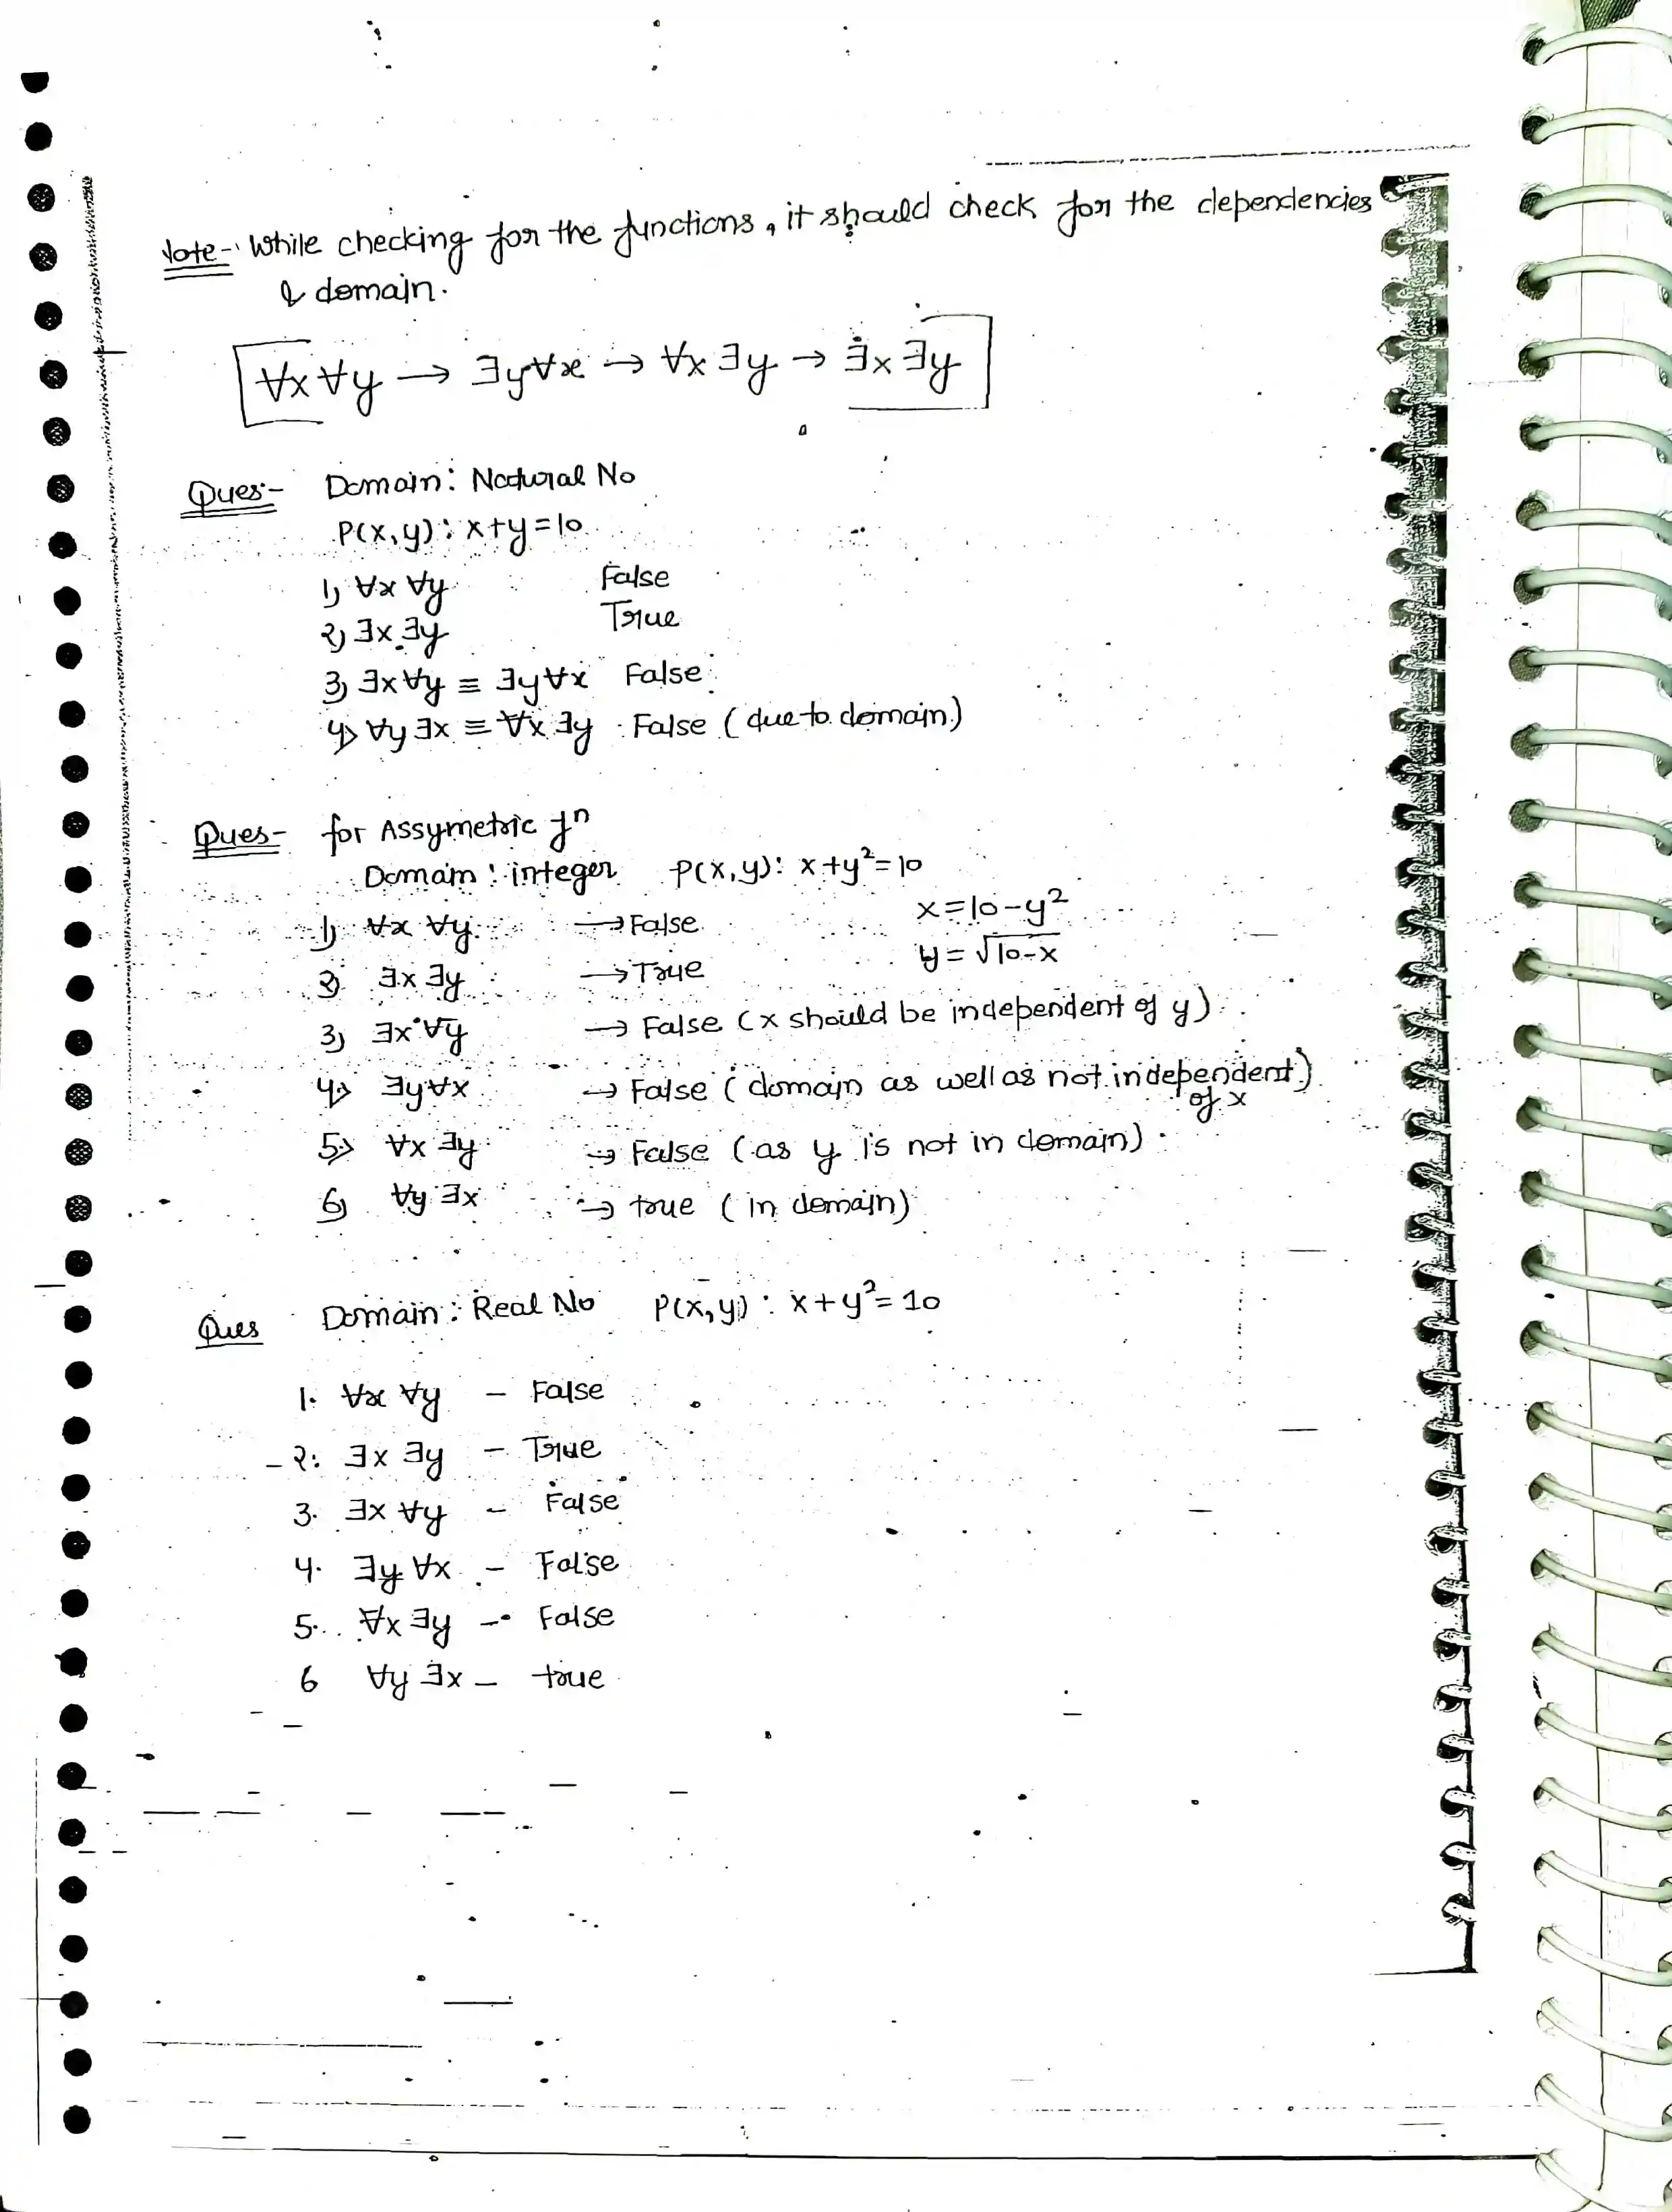 Note- While checking for the functions, it should check for the dependencies
& domain.
∀x ∀y → ∃y∀x → ∀x ∃y → ∃x ∃y
Ques:- Domain: Natural No
P(x,y): x+y=10
1) ∀x ∀y False
2) ∃x ∃y True
3) ∃x∀y ≡ ∃y∀x False
4) ∀y ∃x ≡ ∀x ∃y False (due to domain)
Ques- for Assymetric fⁿ
Domain: integer P(x,y): x+y²=10
x=10-y²
1) ∀x ∀y → False
y=√10-x
2) ∃x ∃y → True
3) ∃x ∀y → False (x should be independent of y)
4) ∃y∀x → False (domain as well as not independent)
of x
5) ∀x ∃y → False (as y is not in domain)
6) ∀y ∃x → true (in domain)
Ques Domain: Real No P(x,y): x+y²=10
1. ∀x ∀y - False
2. ∃x ∃y - True
3. ∃x ∀y - False
4. ∃y ∀x - False
5. ∀x ∃y - False
6 ∀y ∃x - true